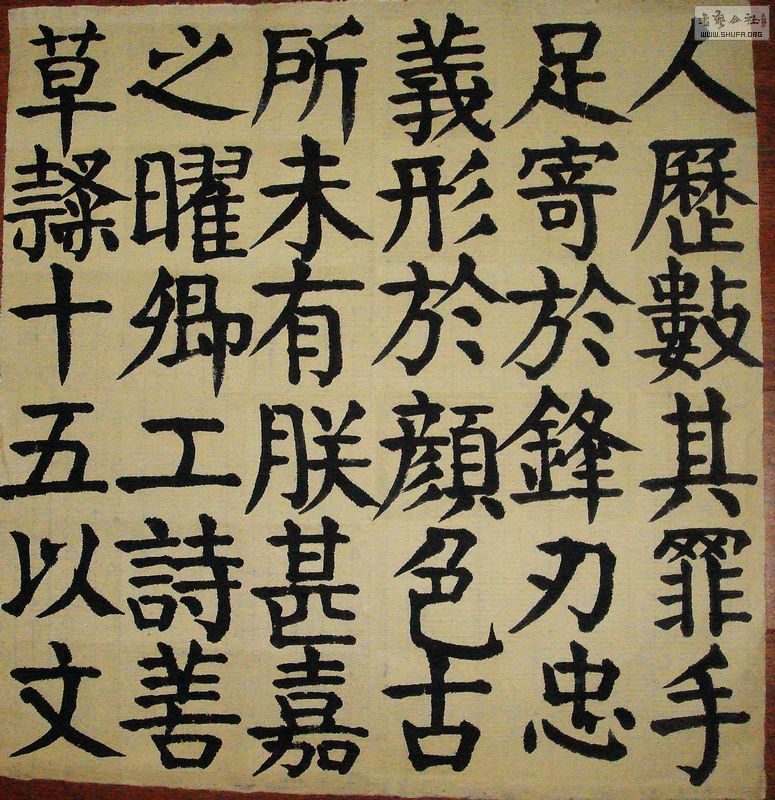 人歷數其罪手
足寄於鋒刃忠
義形於顏色古
所未有朕甚嘉
之曜卿工詩善
草隸十五以文
WWW.SHUFA.ORG